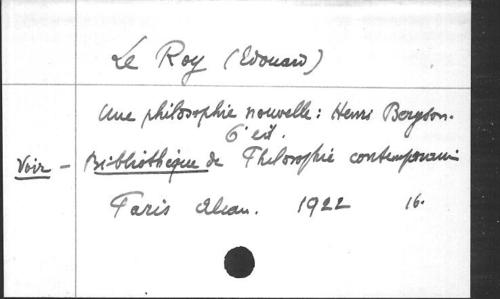 Le Roy (Edouard)
Une philosophie nouvelle : Henri Bergson.
6e éd.
Voir - Bibliothèque de Philosophie contemporaine
Paris Alcan. 1922 16.